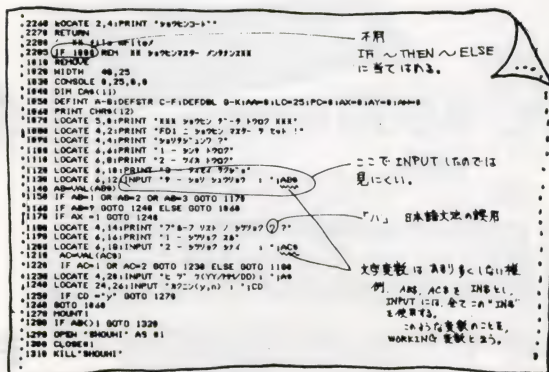 2260 LOCATE 2,4:PRINT "ショウヒンコード"
2270 RETURN
1010 REMOVE
1020 WIDTH 40,25
1030 CONSOLE 0,25,0,0
1040 DIM
1060 PRINT CHR$(12)
1070 LOCATE 5,0:PRINT "*** ショウヒン データ トウロク ***"
1080 LOCATE 4,2:PRINT "FD1 ニ ショウヒン マスター ヲ セット !"
1090 LOCATE 4,4:PRINT
1100 LOCATE 6,6:PRINT "1 - シンキ トウロク"
1110 LOCATE 6,8:PRINT "2 - ツイカ トウロク"
1120 LOCATE 6,10:PRINT
1130 LOCATE 6,12:INPUT "9 - ショリ シュウリョウ : ";AB$
1140 AB=VAL(AB$)
1150 IF AB=1 OR AB=2 OR AB=3 GOTO 1170
1160 IF AB=9 GOTO 1240 ELSE GOTO 1060
1170 IF AX =1 GOTO 1240
1180 LOCATE 4,14:PRINT
1190 LOCATE 6,16:PRINT
1200 LOCATE 6,18:INPUT
1210 AC=VAL(AC$)
1220 IF AC=1 OR AC=2 GOTO 1230 ELSE GOTO 1180
1230 LOCATE 4,20:INPUT "ヒヅケ ?(YY/MM/DD) : ";A$
1240 LOCATE 24,26:INPUT "カクニン(y,n) : ";CD
1250 IF CD ="y" GOTO 1270
1260 GOTO 1060
1270 MOUNT1
1280 IF AB<>1 GOTO 1320
1290 OPEN "SHOUHI" AS #1
1300 CLOSE#1
1310 KILL"SHOUHI"
不用
IF ～THEN～ELSE
に当てはめる。
ここで INPUT したのでは
見にくい。
「ハ」 日本語文法の誤用
文字変数は あまり多くしない様
例. AB$, AC$ を IN$とし,
INPUT には, 全てこの "IN$"
を使用する。
このような変数のことを,
WORKING 変数と云う。